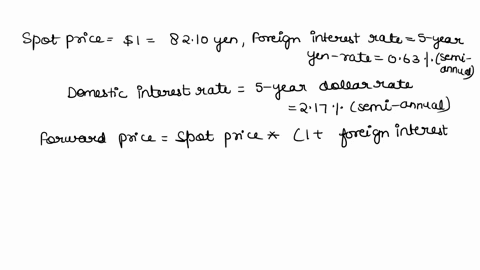 Spot price = $1 = 82.10 yen, Foreign interest rate = 5-year
yen-rate = 0.63 % (semi-annual)
Domestic interest rate = 5-year dollar rate
= 2.17 % (semi-annual)
Forward price = Spot price * (1+ foreign interest